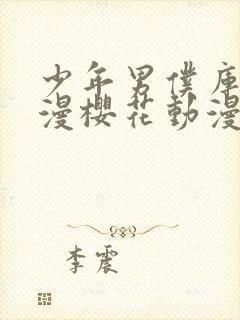 少年男僕庫
漫櫻花動漫
李震